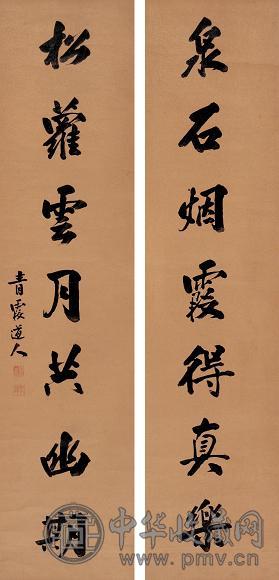 泉石烟霞得真樂
松蘿雲月共幽期
青霞道人
中华收藏网
www.pmv.cn